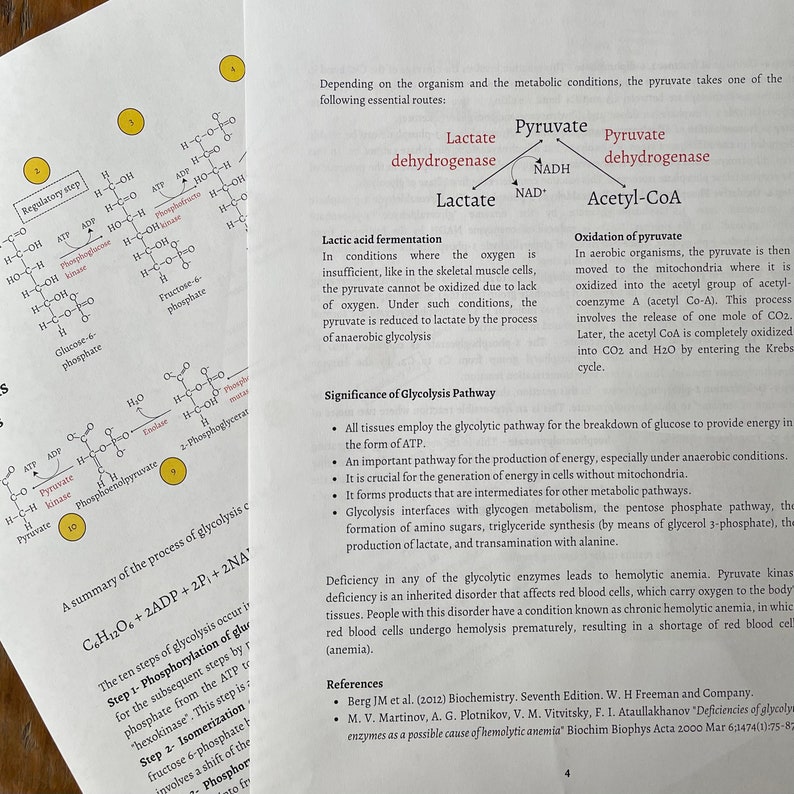 Depending on the organism and the metabolic conditions, the pyruvate takes one of the
following essential routes:
Pyruvate
Lactate
dehydrogenase
Pyruvate
dehydrogenase
NADH
NAD⁺
Lactate
Acetyl-CoA
Lactic acid fermentation
In conditions where the oxygen is
insufficient, like in the skeletal muscle cells,
the pyruvate cannot be oxidized due to lack
of oxygen. Under such conditions, the
pyruvate is reduced to lactate by the process
of anaerobic glycolysis
Oxidation of pyruvate
In aerobic organisms, the pyruvate is then
moved to the mitochondria where it is
oxidized into the acetyl group of acetyl-
coenzyme A (acetyl Co-A). This process
involves the release of one mole of CO2.
Later, the acetyl CoA is completely oxidized
into CO2 and H2O by entering the Krebs
cycle.
Significance of Glycolysis Pathway
• All tissues employ the glycolytic pathway for the breakdown of glucose to provide energy in
the form of ATP.
• An important pathway for the production of energy, especially under anaerobic conditions.
• It is crucial for the generation of energy in cells without mitochondria.
• It forms products that are intermediates for other metabolic pathways.
• Glycolysis interfaces with glycogen metabolism, the pentose phosphate pathway, the
formation of amino sugars, triglyceride synthesis (by means of glycerol 3-phosphate), the
production of lactate, and transamination with alanine.
Deficiency in any of the glycolytic enzymes leads to hemolytic anemia. Pyruvate kinas
deficiency is an inherited disorder that affects red blood cells, which carry oxygen to the body'
tissues. People with this disorder have a condition known as chronic hemolytic anemia, in whic
red blood cells undergo hemolysis prematurely, resulting in a shortage of red blood cell
(anemia).
References
• Berg JM et al. (2012) Biochemistry. Seventh Edition. W. H Freeman and Company.
• M. V. Martinov, A. G. Plotnikov, V. M. Vitvitsky, F. I. Ataullakhanov "Deficiencies of glycoly
enzymes as a possible cause of hemolytic anemia" Biochim Biophys Acta 2000 Mar 6;1474(1):75-87
4
2
3
4
Regulatory step
ATP ADP
Phosphoglucose
kinase
Glucose-6-
phosphate
ATP ADP
Phosphofructo
kinase
Fructose-6-
phosphate
ATP ADP
Pyruvate
kinase
Pyruvate
10
Phosphoenolpyruvate
H₂O
Enolase
9
2-Phosphoglycerat
Phosph
mutas
A summary of the process of glycolysis c
C₆H₁₂O₆ + 2ADP + 2Pᵢ + 2NA
The ten steps of glycolysis occur in
Step 1- Phosphorylation of gluc
for the subsequent steps by
phosphate from the ATP to
"hexokinase". This step is
Step 2- Isomerization
fructose 6-phosphate
involves a shift of the
Phosphory
into fr